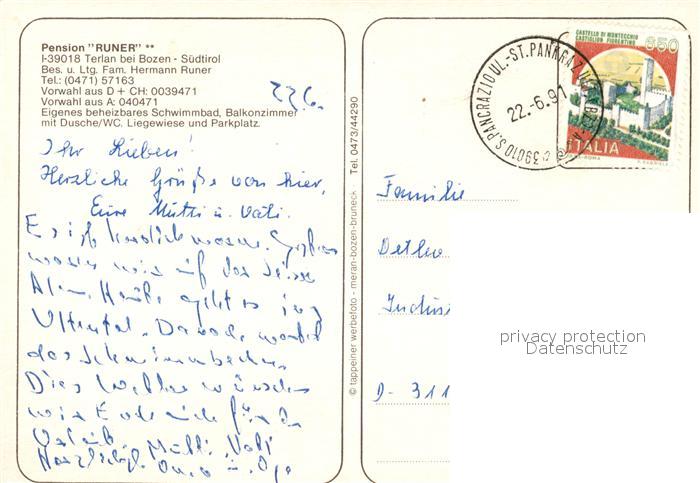 Pension "RUNER" **
I-39018 Terlan bei Bozen - Südtirol
Bes. u. Ltg. Fam. Hermann Runer
Tel.: (0471) 57163
Vorwahl aus D + CH: 0039471
Vorwahl aus A: 040471
Eigenes beheizbares Schwimmbad, Balkonzimmer
mit Dusche/WC. Liegewiese und Parkplatz.
22.6.
Ihr Lieben!
Herzliche Grüße von hier,
Eure Mutti u. Vati.
Es ist herrlich warm. Gestern
waren wir auf der Seiser
Alm. Heute geht es ins
Ultental. Danach wartet
das Schwimmbecken.
Dies Wetter wünschen
wir Euch auch für den
Urlaub. Mutti, Vati
Oma u. Opa
© tappeiner werbefoto - meran-bozen-bruneck - Tel. 0473/44290
39010 S. PANCRAZIO UL. - ST. PANKRAZ
22.-6.91
CASTELLO DI MONTECCHIO
CASTIGLION FIORENTINO
650
ITALIA
Familie
Detlev
Indus
D- 311
privacy protection
Datenschutz